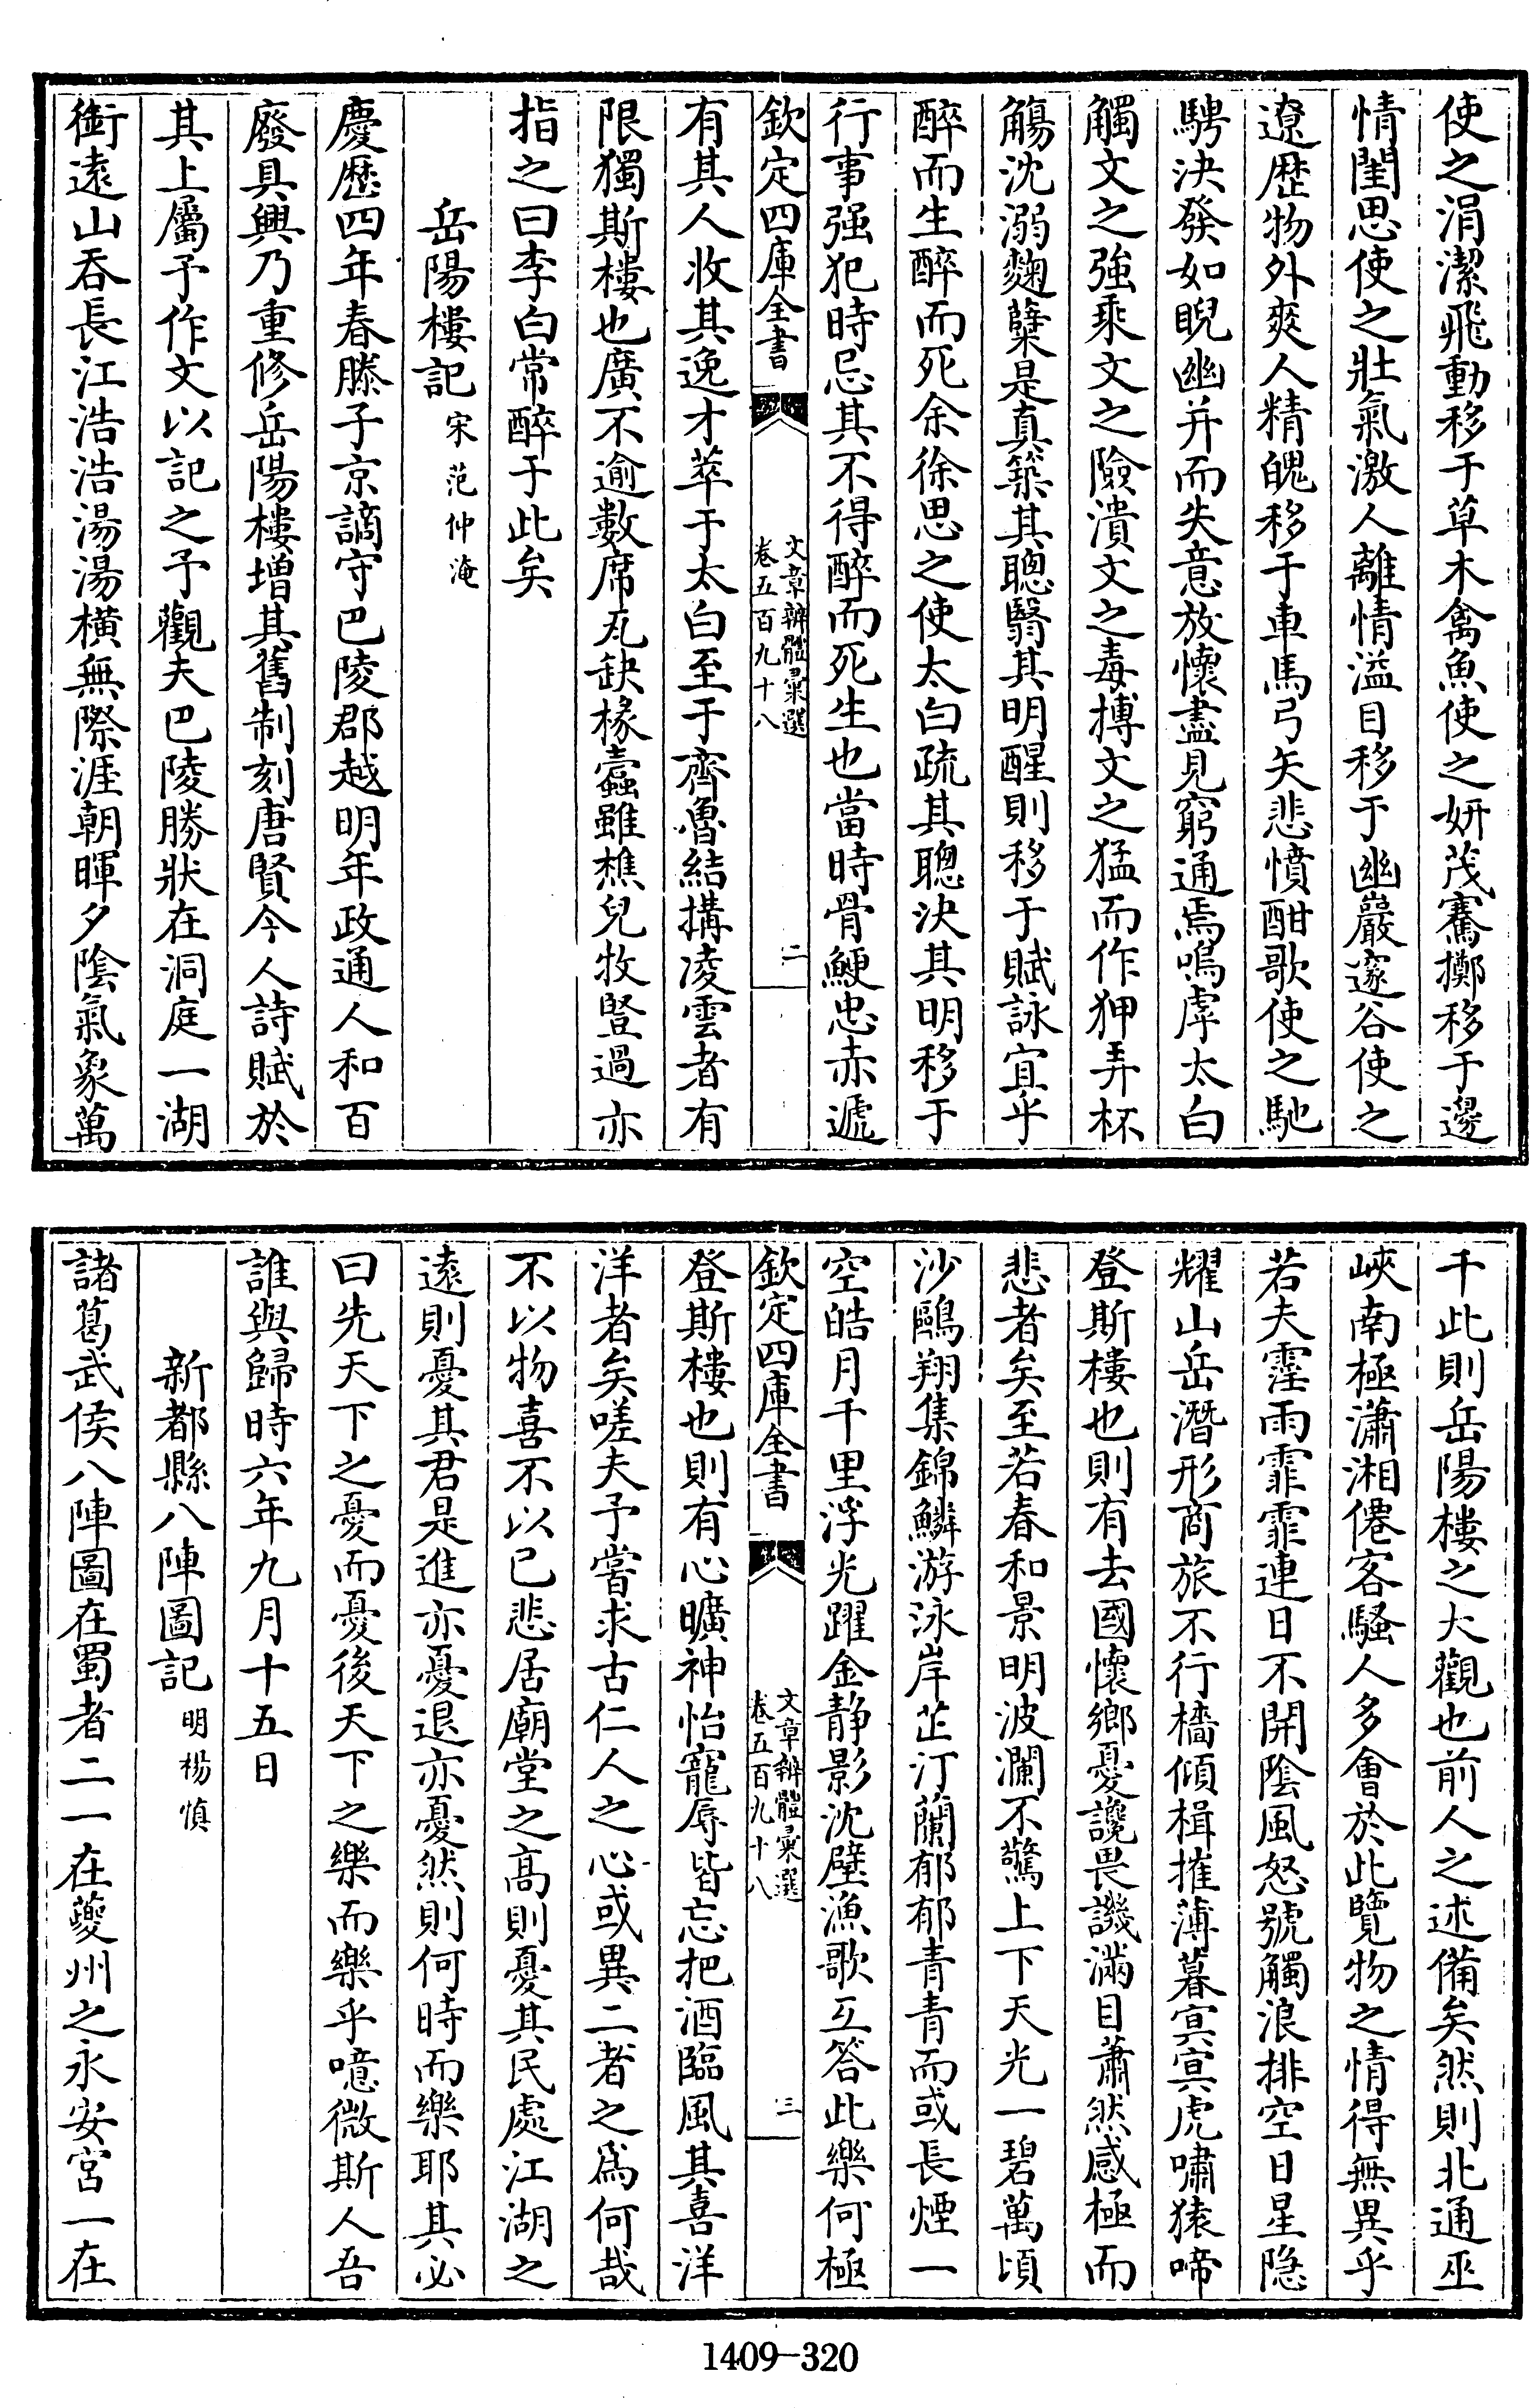 使之涓潔飛動移于草木禽魚使之妍茂騫擲移于邊
情閨思使之壯氣激人離情溢目移于幽巖邃谷使之
遼歷物外爽人精魄移于車馬弓矢悲憤酣歌使之馳
騁決發如睨幽并而失意放懷盡見窮通焉嗚虖太白
觸文之強乘文之險潰文之毒搏文之猛而作狎弄杯
觴沈溺麴糵是真築其聰翳其明醒則移于賦詠宜乎
醉而生醉而死余徐思之使太白疏其聰決其明移于
行事强犯時忌其不得醉而死生也當時骨鯁忠赤遞
欽定四庫全書
文章辨體彙選
卷五百九十八
二
有其人收其逸才萃于太白至于齊魯結搆凌雲者有
限獨斯樓也廣不逾數席瓦缺椽蠹雖樵兒牧豎過亦
指之曰李白常醉于此矣
岳陽樓記 宋范仲淹
慶歷四年春滕子京謫守巴陵郡越明年政通人和百
廢具興乃重修岳陽樓增其舊制刻唐賢今人詩賦於
其上屬予作文以記之予觀夫巴陵勝狀在洞庭一湖
銜遠山吞長江浩浩湯湯橫無際涯朝暉夕陰氣象萬
千此則岳陽樓之大觀也前人之述備矣然則北通巫
峽南極瀟湘僊客騷人多會於此覽物之情得無異乎
若夫霪雨霏霏連日不開陰風怒號觸浪排空日星隐
耀山岳潛形商旅不行檣傾楫摧薄暮冥冥虎嘯猿啼
登斯樓也則有去國懷鄉憂讒畏譏滿目蕭然感極而
悲者矣至若春和景明波瀾不驚上下天光一碧萬頃
沙鷗翔集錦鱗游泳岸芷汀蘭郁郁青青而或長煙一
空皓月千里浮光躍金静影沈壁漁歌互答此樂何極
欽定四庫全書
文章辨體彙選
卷五百九十八
三
登斯樓也則有心曠神怡寵辱皆忘把酒臨風其喜洋
洋者矣嗟夫予嘗求古仁人之心或異二者之為何哉
不以物喜不以已悲居廟堂之高則憂其民處江湖之
遠則憂其君是進亦憂退亦憂然則何時而樂耶其必
曰先天下之憂而憂後天下之樂而樂乎噫微斯人吾
誰與歸時六年九月十五日
新都縣八陣圖記 明楊慎
諸葛武侯八陣圖在蜀者二一在夔州之永安宮一在
1409-320